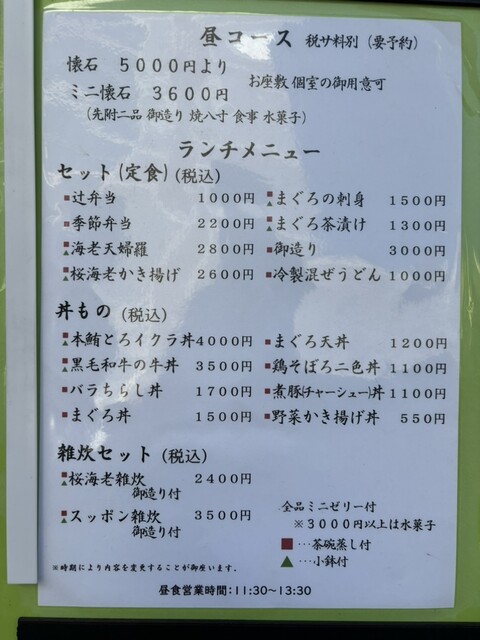 昼コース 税サ料別（要予約）
懐石 5000円より
ミニ懐石 3600円 お座敷 個室の御用意可
（先附二品 御造り 焼八寸 食事 水菓子）
ランチメニュー
セット(定食)(税込)
■辻弁当 1000円 ■▲まぐろの刺身 1500円
■季節弁当 2200円 ■▲まぐろ茶漬け 1300円
■▲海老天婦羅 2800円 ■御造り 3000円
■▲桜海老かき揚げ 2600円 ■冷製混ぜうどん 1000円
丼もの (税込)
■▲本鮪とろイクラ丼 4000円 ■まぐろ天丼 1200円
■▲黒毛和牛の牛丼 3500円 ■鶏そぼろ二色丼 1100円
■バラちらし丼 1700円 ■煮豚(チャーシュー)丼 1100円
■まぐろ丼 1500円 ■野菜かき揚げ丼 550円
雑炊セット (税込)
■▲桜海老雑炊 2400円
御造り付
■▲スッポン雑炊 3500円
御造り付
全品ミニゼリー付
※3000円以上は水菓子
■…茶碗蒸し付
▲…小鉢付
※時期により内容を変更することが御座います。
昼食営業時間：11:30～13:30